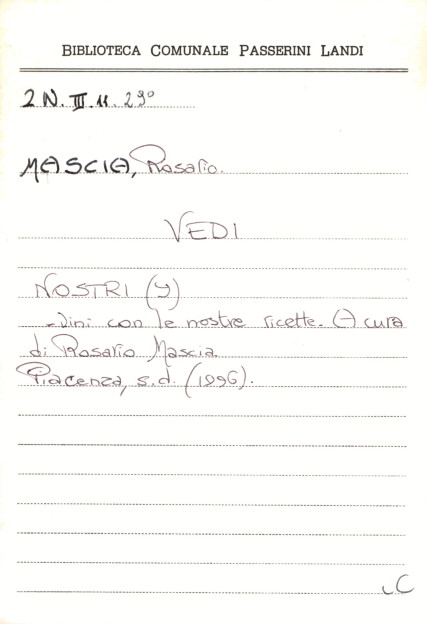 BIBLIOTECA COMUNALE PASSERINI LANDI
2N.III.11.29°
MASCIA, Rosario.
VEDI
NOSTRI (I)
-Vini con le nostre ricette. A cura
di Rosario Mascia.
Piacenza, s.d. (1996).